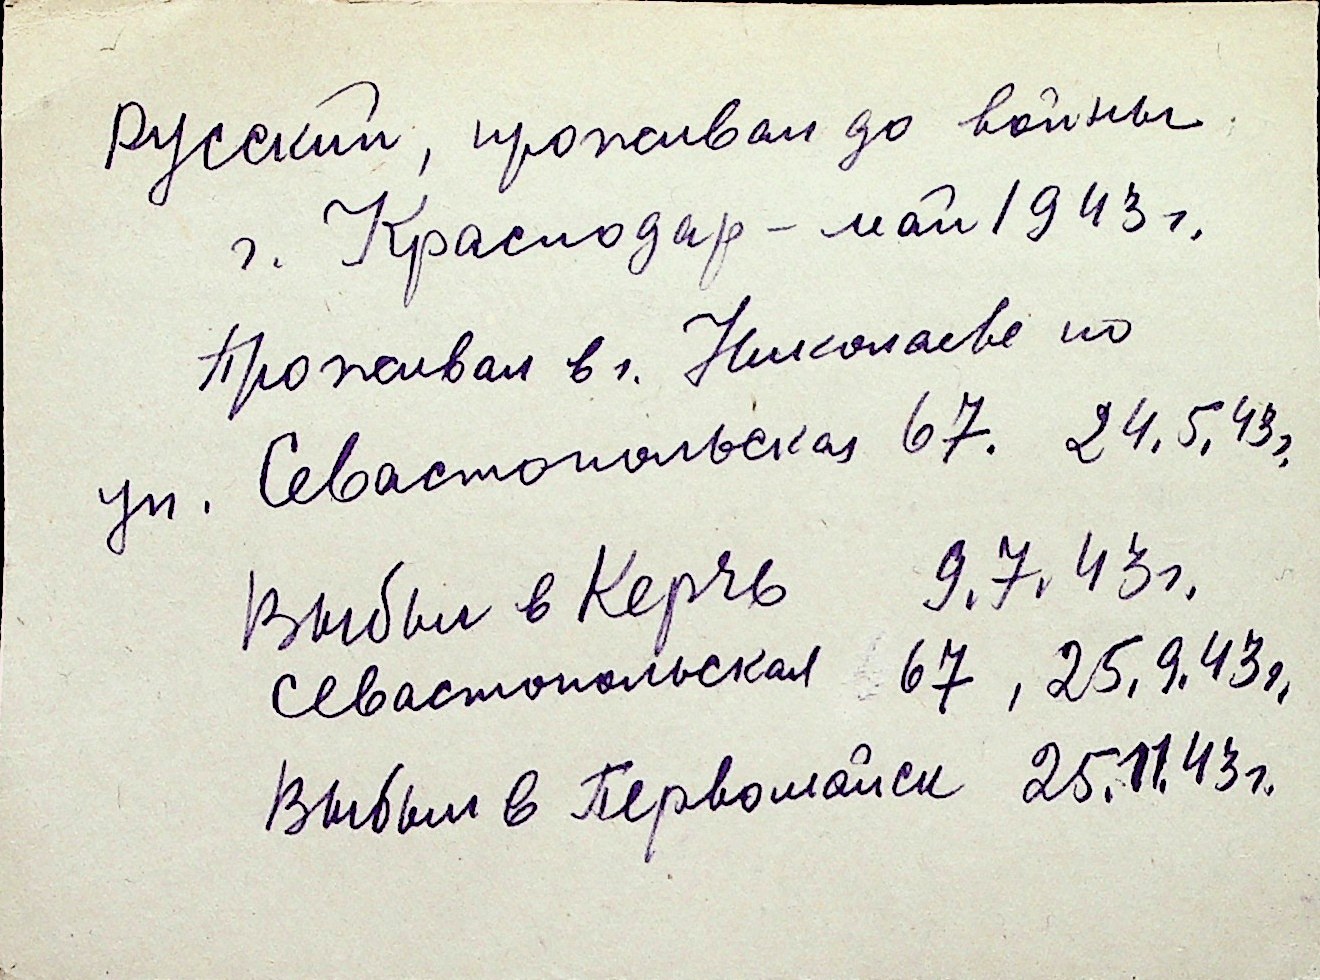 Русский, проживал до войны
г. Краснодар - май 1943 г.
Проживал в г. Николаеве по
ул. Севастопольская 67. 24.5.43 г.
Выбыл в Керчь 9.7.43 г.
Севастопольская 67, 25.9.43 г.
Выбыл в Первомайск 25.11.43 г.